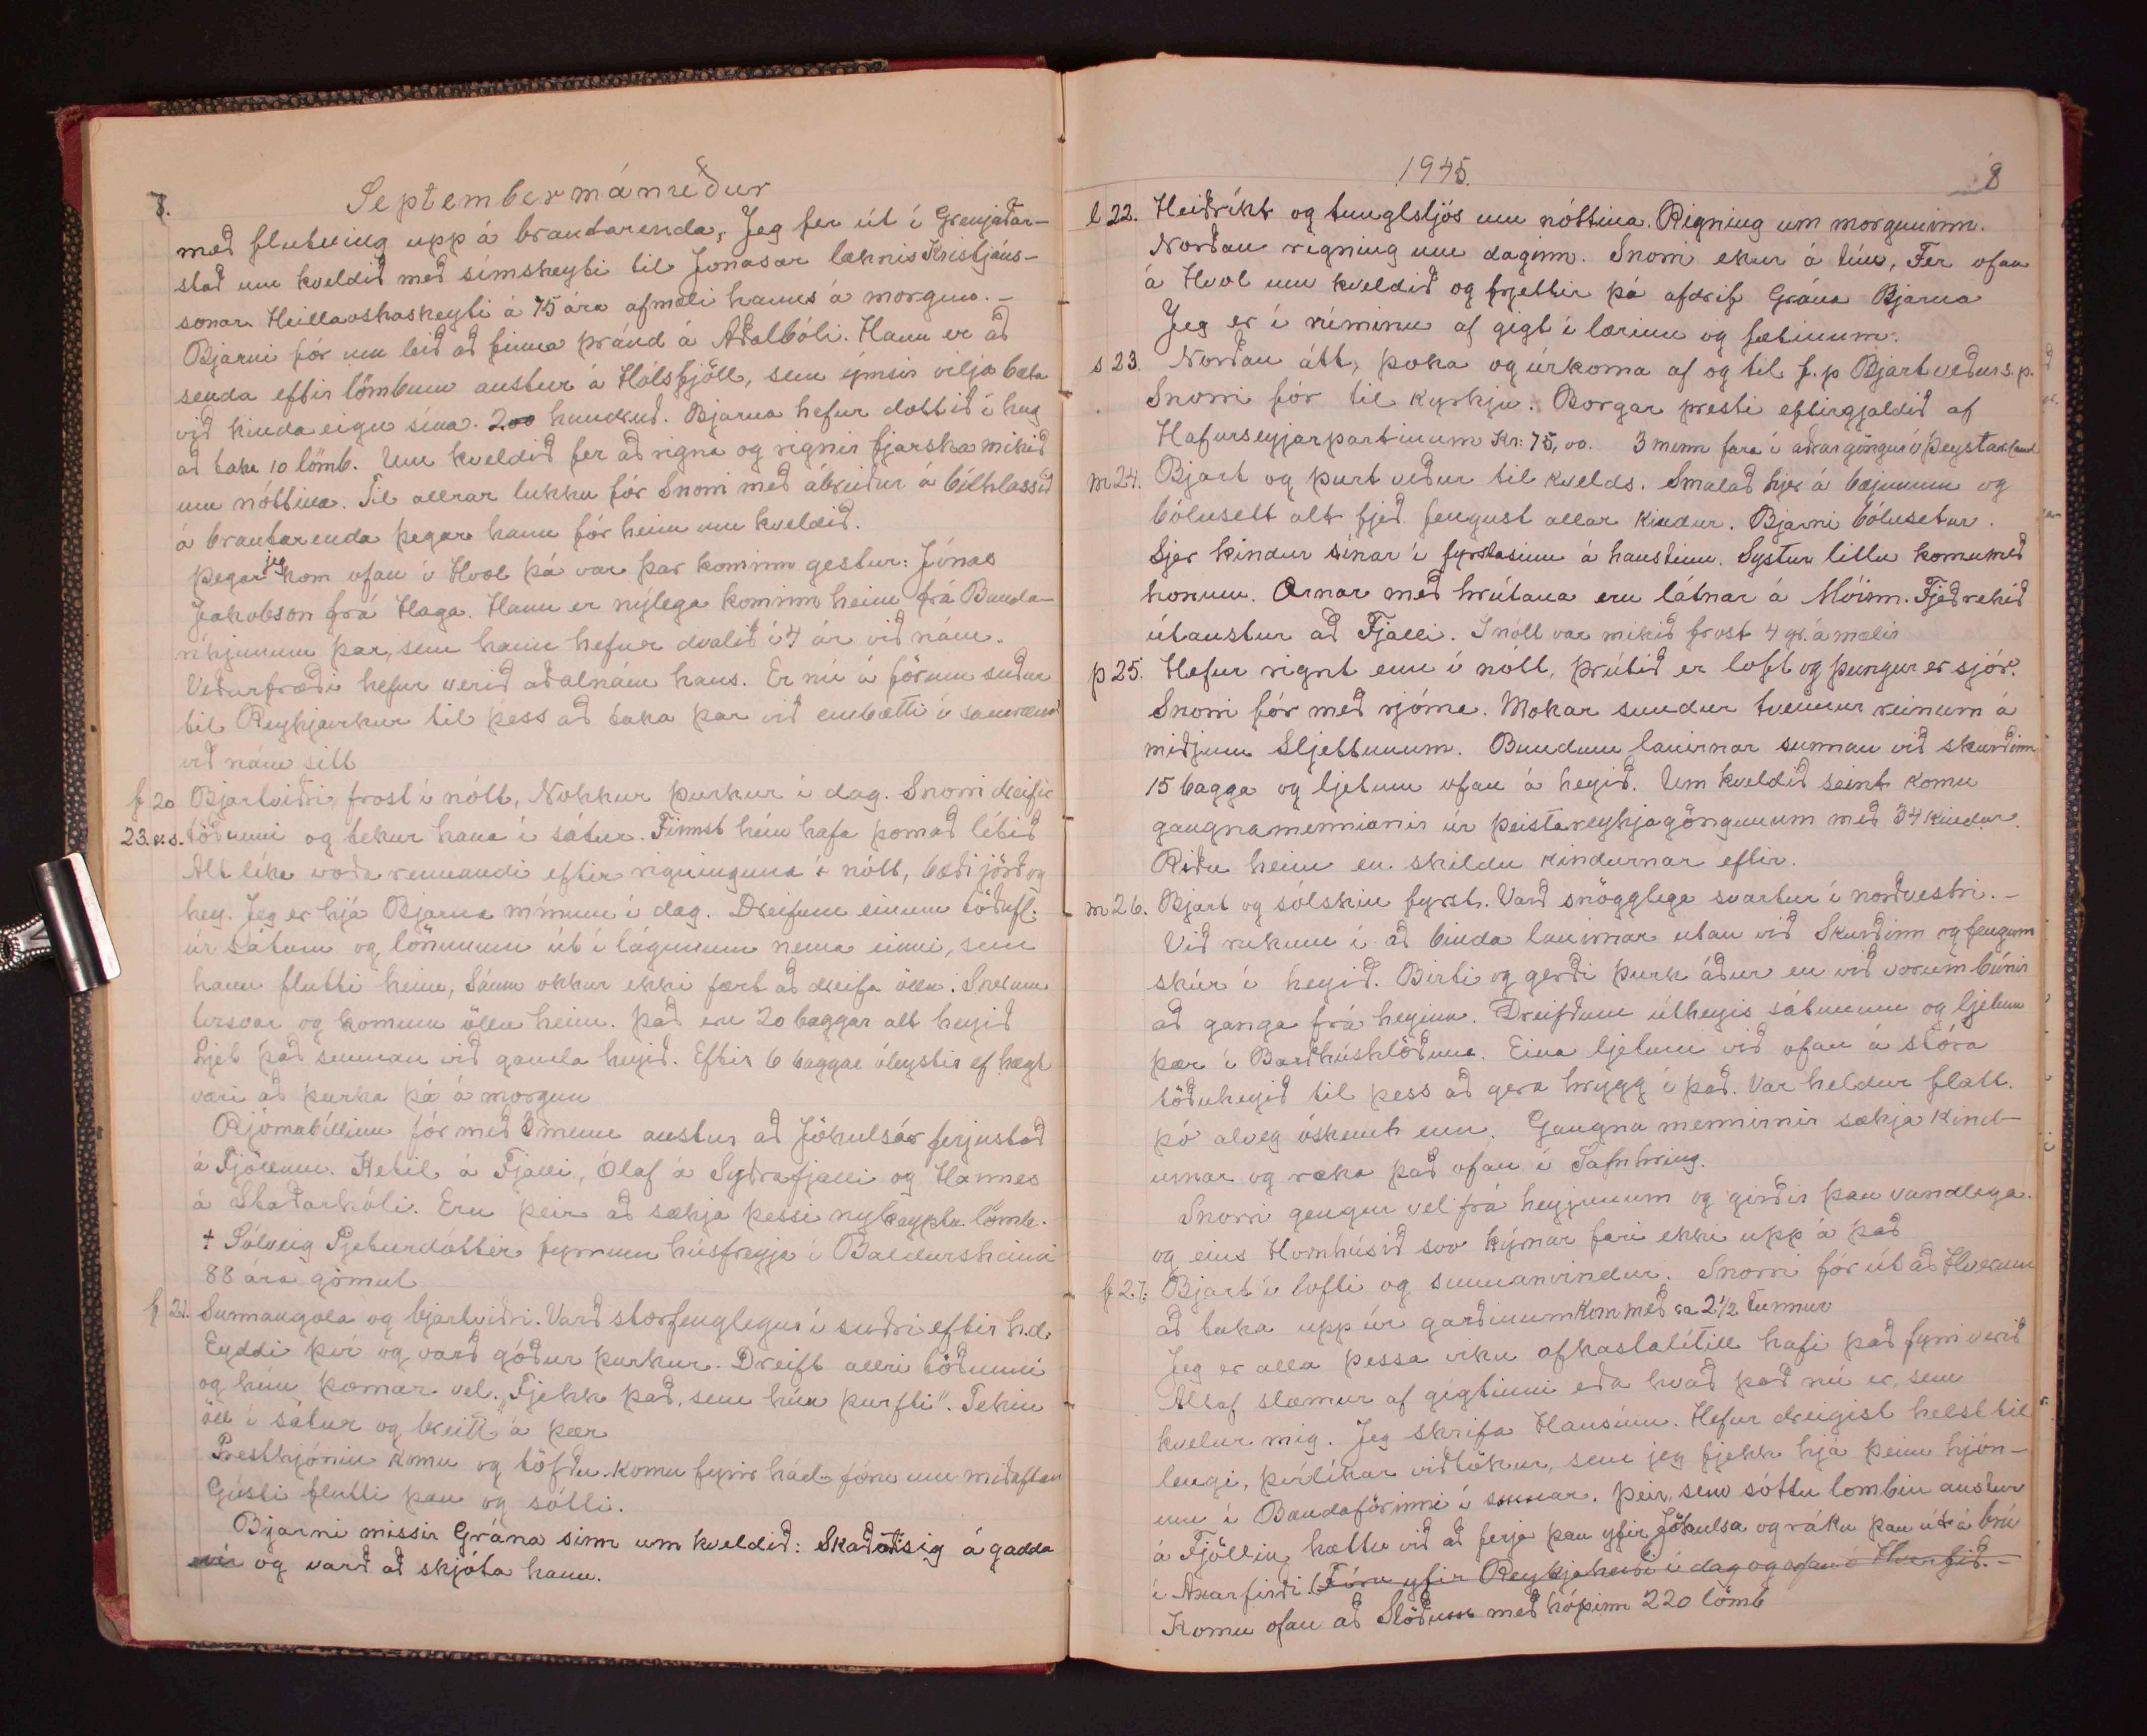 7.
Septembermánuður
með flutning upp á brautarenda, Jeg fer út í Grenjaðar-
stað um kveldið með símskeyti til Jónasar læknis Kristjáns-
sonar. Heillaóskaskeyti á 75 ára afmæli hanns á morgun. -
Bjarni fór um leið að finna þránd á Aðalbóli. Hann er að
senda eftir lömbum austur á Hólsfjöll, sem ýmsir vilja bæta
við kinda eign sína. 200 hundruð. Bjarna hefur dottið í hug
að taka 10 lömb. Um kveldið fer að rigna og rignir fjarska mikið
um nóttina. Til allrar lukku fór Snorri með ábreiður á bílhlassið
á brautarenda þegar hann fór heim um kveldið.
þegar jeg kom ofan í Hvol þá var þar kominn gestur: Jónas
Jakobson frá Haga. Hann er nýlega kominn heim frá Banda-
ríkjunum þar, sem hann hefur dvalið í 4 ár við nám.
Veðurfræði hefur verið aðalnám hans. Er nú á förum suður
til Reykjavíkur til þess að taka þar við embætti í samræmi
við nám sitt
f 20 Bjartviðri, frost í nótt, Nokkur þurkur í dag. Snorri dreifir
23. v.s. töðunni og tekur hana í sátur. Finnst hún hafa þornað lítið
Alt líka vaða rennandi eftir rigninguna í nótt, bæði jörð og
hey. Jeg er hjá Bjarna mínum í dag. Dreifum einum töðufl.
úr sátum og lönunum út í lágunum nema einni, sem
hann flutti heim, Sáum okkur ekki fært að dreifa öllu. Snerum
tvisvar og komum öllu heim. það eru 20 baggar alt heyið
Ljet það sunnan við gamla heyið. Eftir 6 baggar óleystir ef hægt
væri að þurka þá á morgun
Rjómabíllinn fór með 3 menn austur að Jökulsár ferjustað
á Fjöllum. Ketil á Fjalli, Ólaf á Syðrafjalli og Hannes
á Staðarhóli. Eru þeir að sækja þessi nýkeyptu lömb.
+ Sólveig Pjetursdóttir fyrrum húsfreyja í Baldursheimi
88 ára gömul
f 21. Sunnangola og bjartviðri. Varð stórfenglegur í suðri eftir h.d.
Eyddi því og varð góður þurkur. Dreift allri töðunni
og hún þornar vel. „Fjekk það, sem hún þurfti". Tekin
öll í sátur og breitt á þær
Presthjónin komu og töfðu. Komu fyrir hád. fóru um miðaftan
Gústi flutti þau og sótti.
Bjarni missir Grána sinn um kveldið: Skaðaði sig á gadda
vír og varð að skjóta hann.
1945.
8
l 22. Heiðríkt og tunglsljós um nóttina. Rigning um morguninn.
Norðan rigning um daginn. Snorri ekur á tún, Fer ofan
á Hvol um kveldið og frjettir þá afdrif Grána Bjarna
Jeg er í rúminu af gigt í lærinu og fætinum.
s 23. Norðan átt, þoka og úrkoma af og til f.p Bjart veður s.p.
Snorri fór til kyrkju. Borgar presti eftirgjaldið af
Hafurseyjarpartinum Kr: 75,00. 3 menn fara í aðrar göngur á þeystar land
m 24. Bjart og þurt veður til kvelds. Smalað hjer á bæjunum og
bólusett alt fjeð fengust allar kindur. Bjarni bólusetur
sjer kindur sínar í fyrstasinn á haustinu. Systur litlu komu með
honum. Arnar með hrútana eru látnar á Móinn. Fjeð rekið
útaustur að Fjalli. Í nótt var mikið frost 4 gr. á mælir
þ 25. Hefur rignt enn í nótt, þrútið er loft og þungur er sjór.
Snorri fór með rjóma. Mokar sundur tvennur reinum á
miðjum Sljettunum. Bundum lanirnar sunnan við skurðinn
15 bagga og ljetum ofan á heyið. Um kveldið seint komu
gangnamennirnir úr þeistareykjagöngunum með 34 kindur.
Riðu heim en skildu kindurnar eftir.
m 26. Bjart og sólskin fyrst. Varð snögglega svartur í norðvestri. -
Við rukum í að binda lanirnar utan við Skurðinn og fengum
skúr í heyið. Birti og gerði þurk áður en við vorum búnir
að ganga frá heyinu. Dreifðum útheyis sátunum og ljetum
þær í Barðhúshlöðuna. Eina ljetum við ofan á stóra
töðuheyið til þess að gera hrygg í það. Var heldur flatt.
þó alveg óskemt enn. Gangna mennirnir sækja kind-
urnar og reka það ofan í Safnhring.
Snorri gengur vel frá heyjunum og girðir þau vandlega.
og eins Hornhúsið svo kýrnar fari ekki upp á það
f 27. Bjart í lofti og sunnanvindur. Snorri fór út að Hverum
að taka upp úr garðinum kom með ca 2 1/2 tunnur
Jeg er alla þessa viku afkastalítill hafi það fyrri verið
Altaf slæmur af gigtinni eða hvað það nú er, sem
kvelur mig. Jeg skrifa Hansínu. Hefur dreigist helst til
lengi, þvílíkar viðtökur, sem jeg fjekk hjá þeim hjón-
um í Bændaförinni í sumar. þeir, sem sóttu lömbin austur
á Fjöllin hættu við að ferja þau yfir Jökulsá og ráku þau út á brú
í Axarfirði. Fóru yfir Reykjaheiði í dag og ofan í Hverfið. -
Komu ofan að Slöðum með hópinn 220 lömb